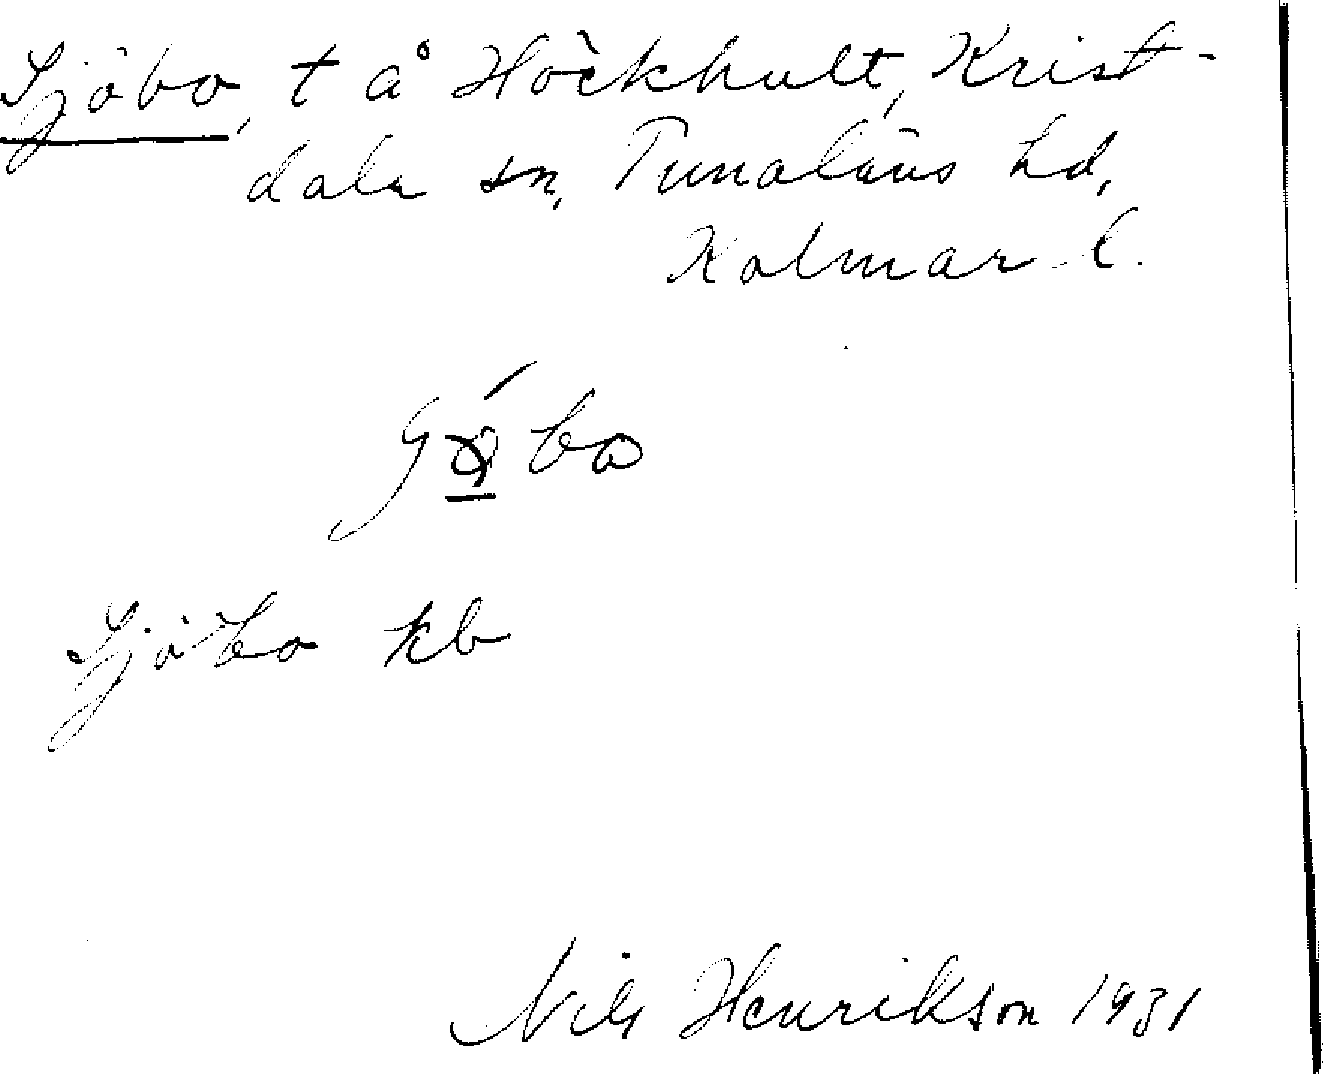 Sjöbo, t å Höckhult, Krist-
dala sn, Tunaläns hd,
Kalmar l.
bo
Sjöbo kb
Nils Henrikson 1931